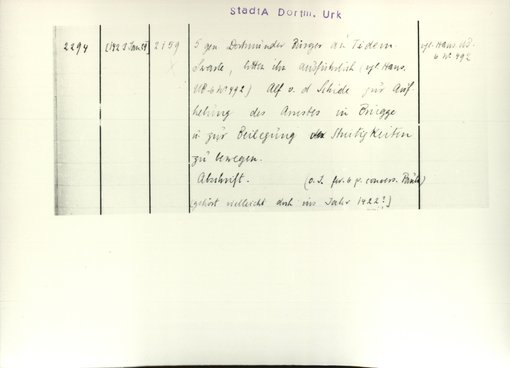 StadtA Dortm. Urk
2294
[1423 Jan. 57]
2159
5 gen. Dortmunder Bürger an Tidem.
Swarte, bitten ihn ausführlich (vgl. Hans.
UB. 6 No 492) Alf v. d. Schide zur Auf-
hebung des Amstes in Brügge
u. zur Beilegung der Streitigkeiten
zu bewegen.
Abschrift.
(o. J. fer. 6 p. convers. Pauli)
[gehört vielleicht doch ins Jahr 1422?]
vgl. Hans. UB.
6 No 492